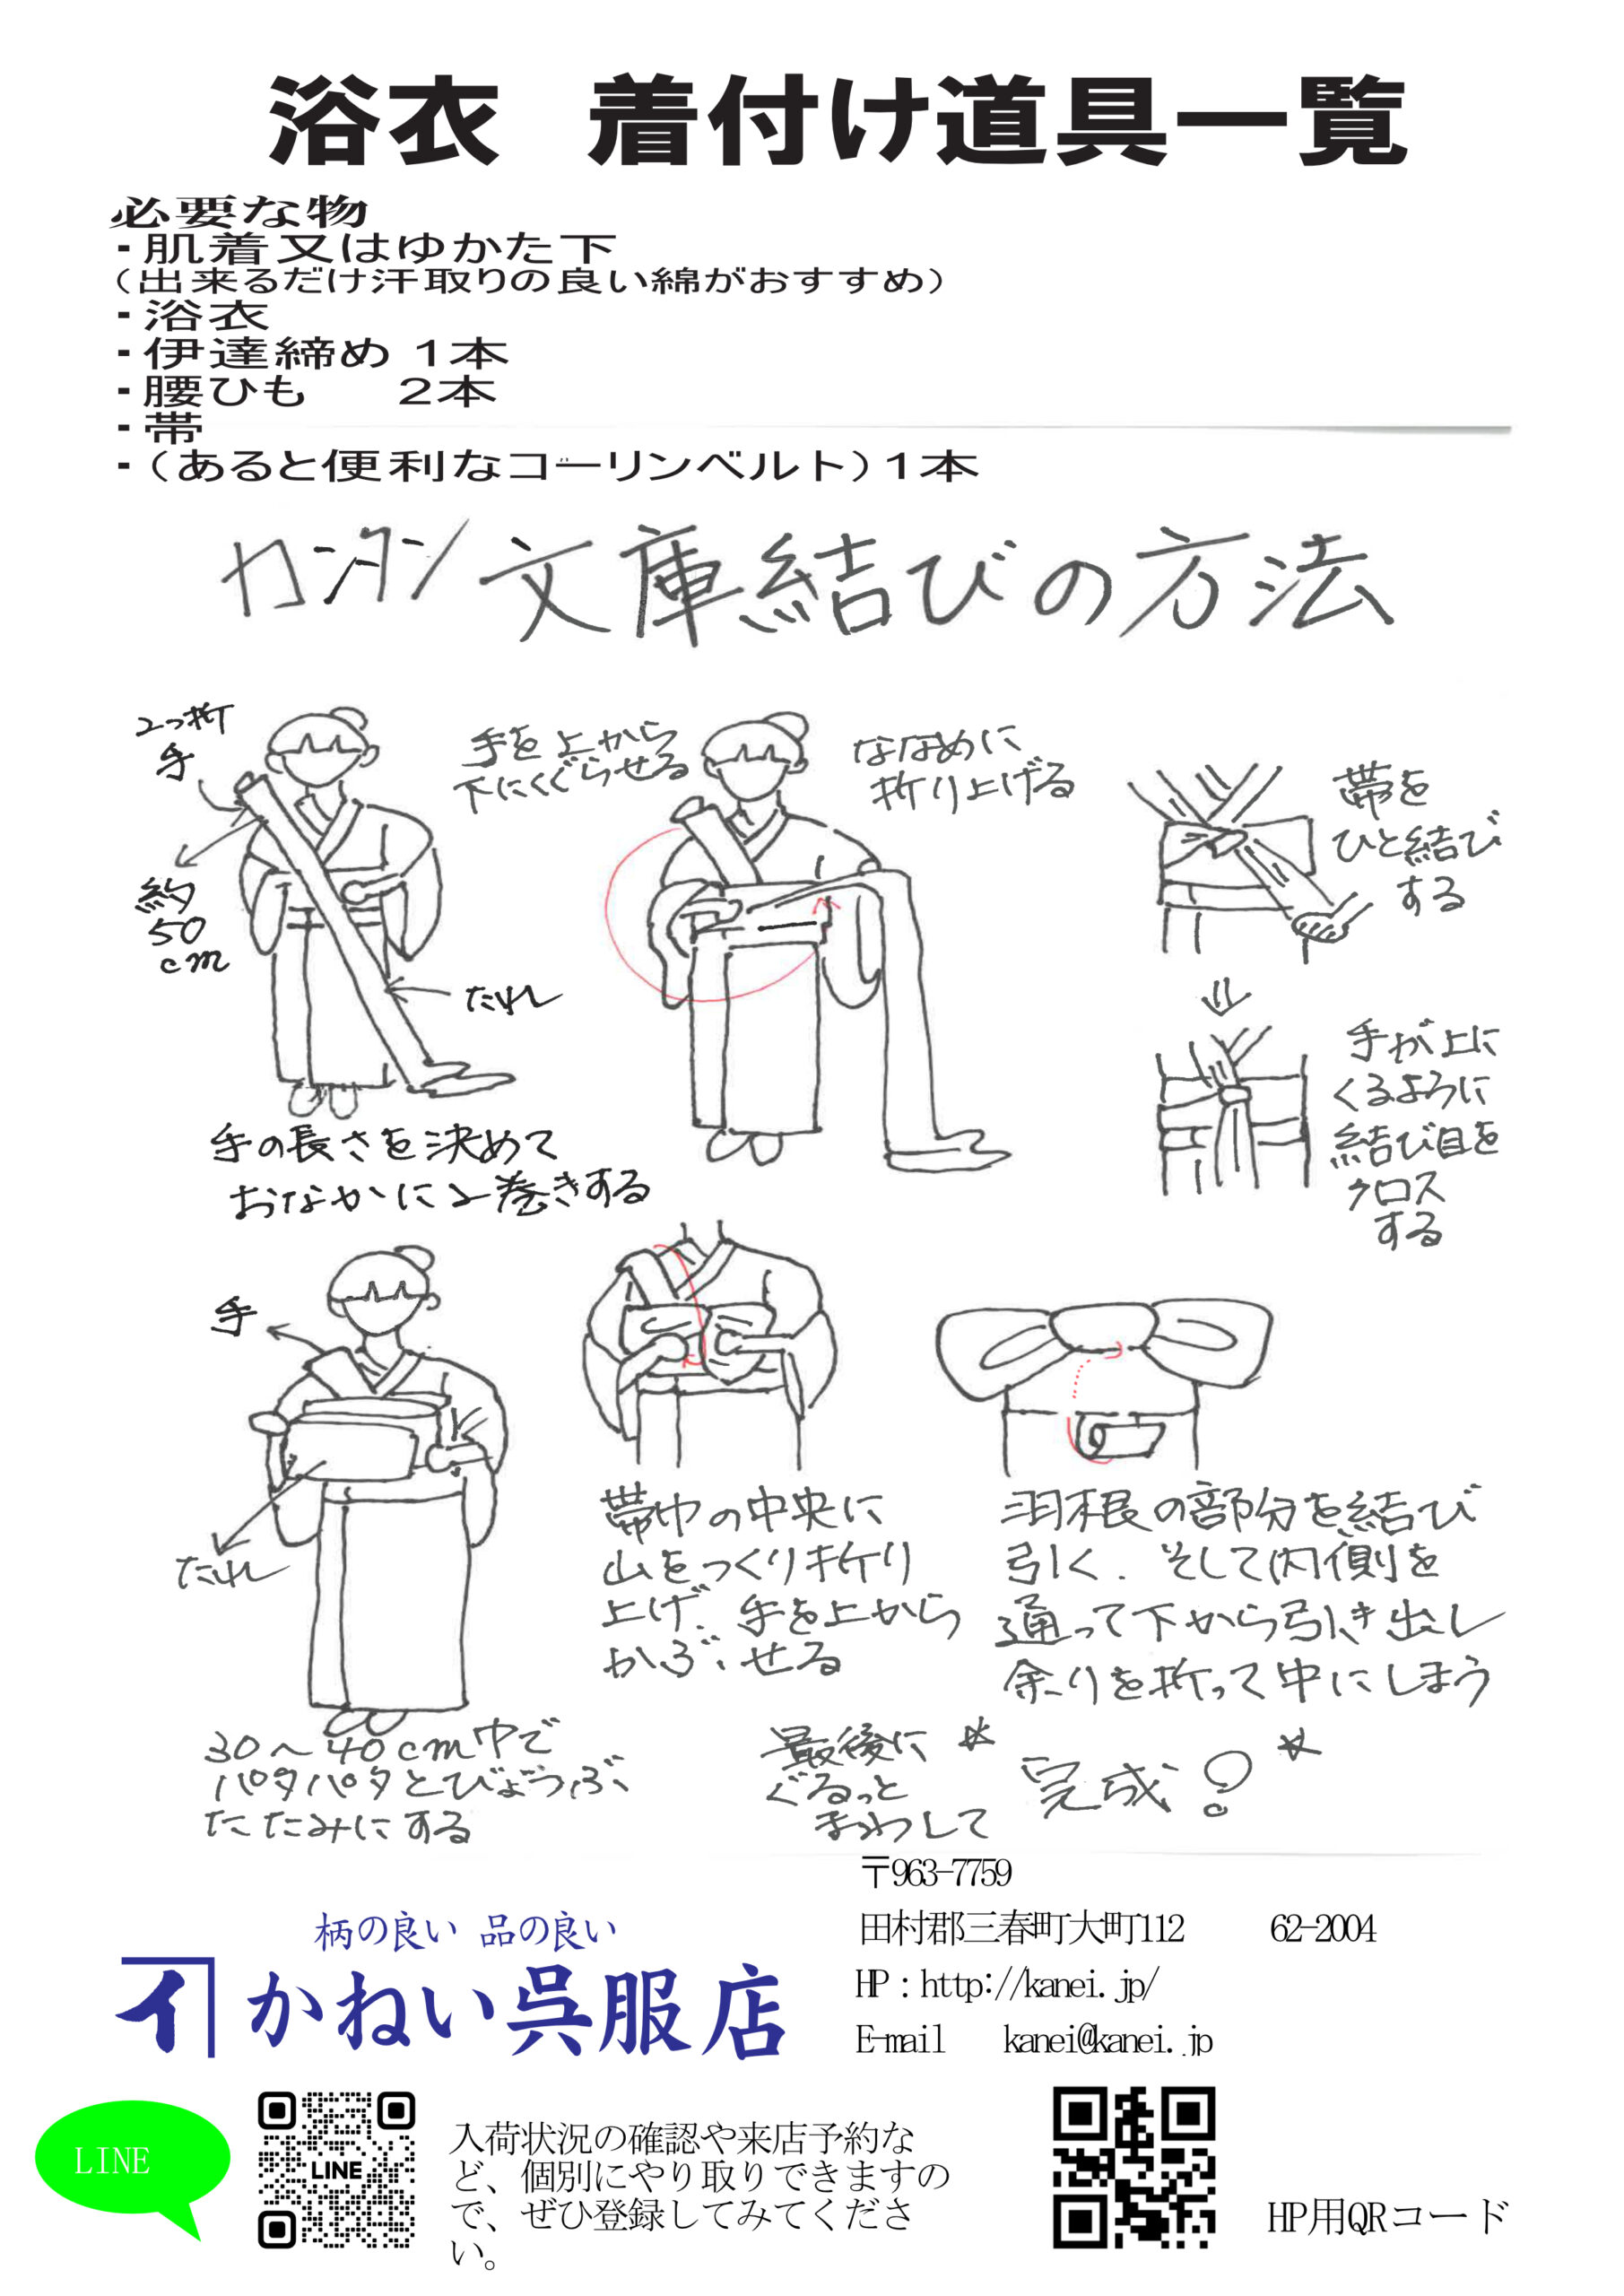 浴衣　着付け道具一覧
必要な物
・肌着又はゆかた下
（出来るだけ汗取りの良い綿がおすすめ）
・浴衣
・伊達締め 1本
・腰ひも　2本
・帯
・（あると便利なコーリンベルト）1本
カンタン文庫結びの方法
2つ折
手
約
50
cm
たれ
手の長さを決めて
おなかに2巻きする
手を上から
下にくぐらせる
ななめに
折り上げる
帯を
ひと結び
する
手が上に
くるように
結び目を
クロス
する
手
たれ
30〜40cm巾で
パタパタとびょうぶ
たたみにする
帯巾の中央に
山をつくり折り
上げ、手を上から
かぶせる
羽根の部分を結び
引く. そして内側を
通って下から引き出し
余りを折って中にしまう
最後に
ぐるっと
まわして
完成!
〒963-7759
田村郡三春町大町112　62-2004
HP：http://kanei.jp/
E-mail　kanei@kanei.jp
柄の良い 品の良い
イ かねい呉服店
LINE
LINE
入荷状況の確認や来店予約な
ど、個別にやり取りできますの
で、ぜひ登録してみてくださ
い。
HP用QRコード